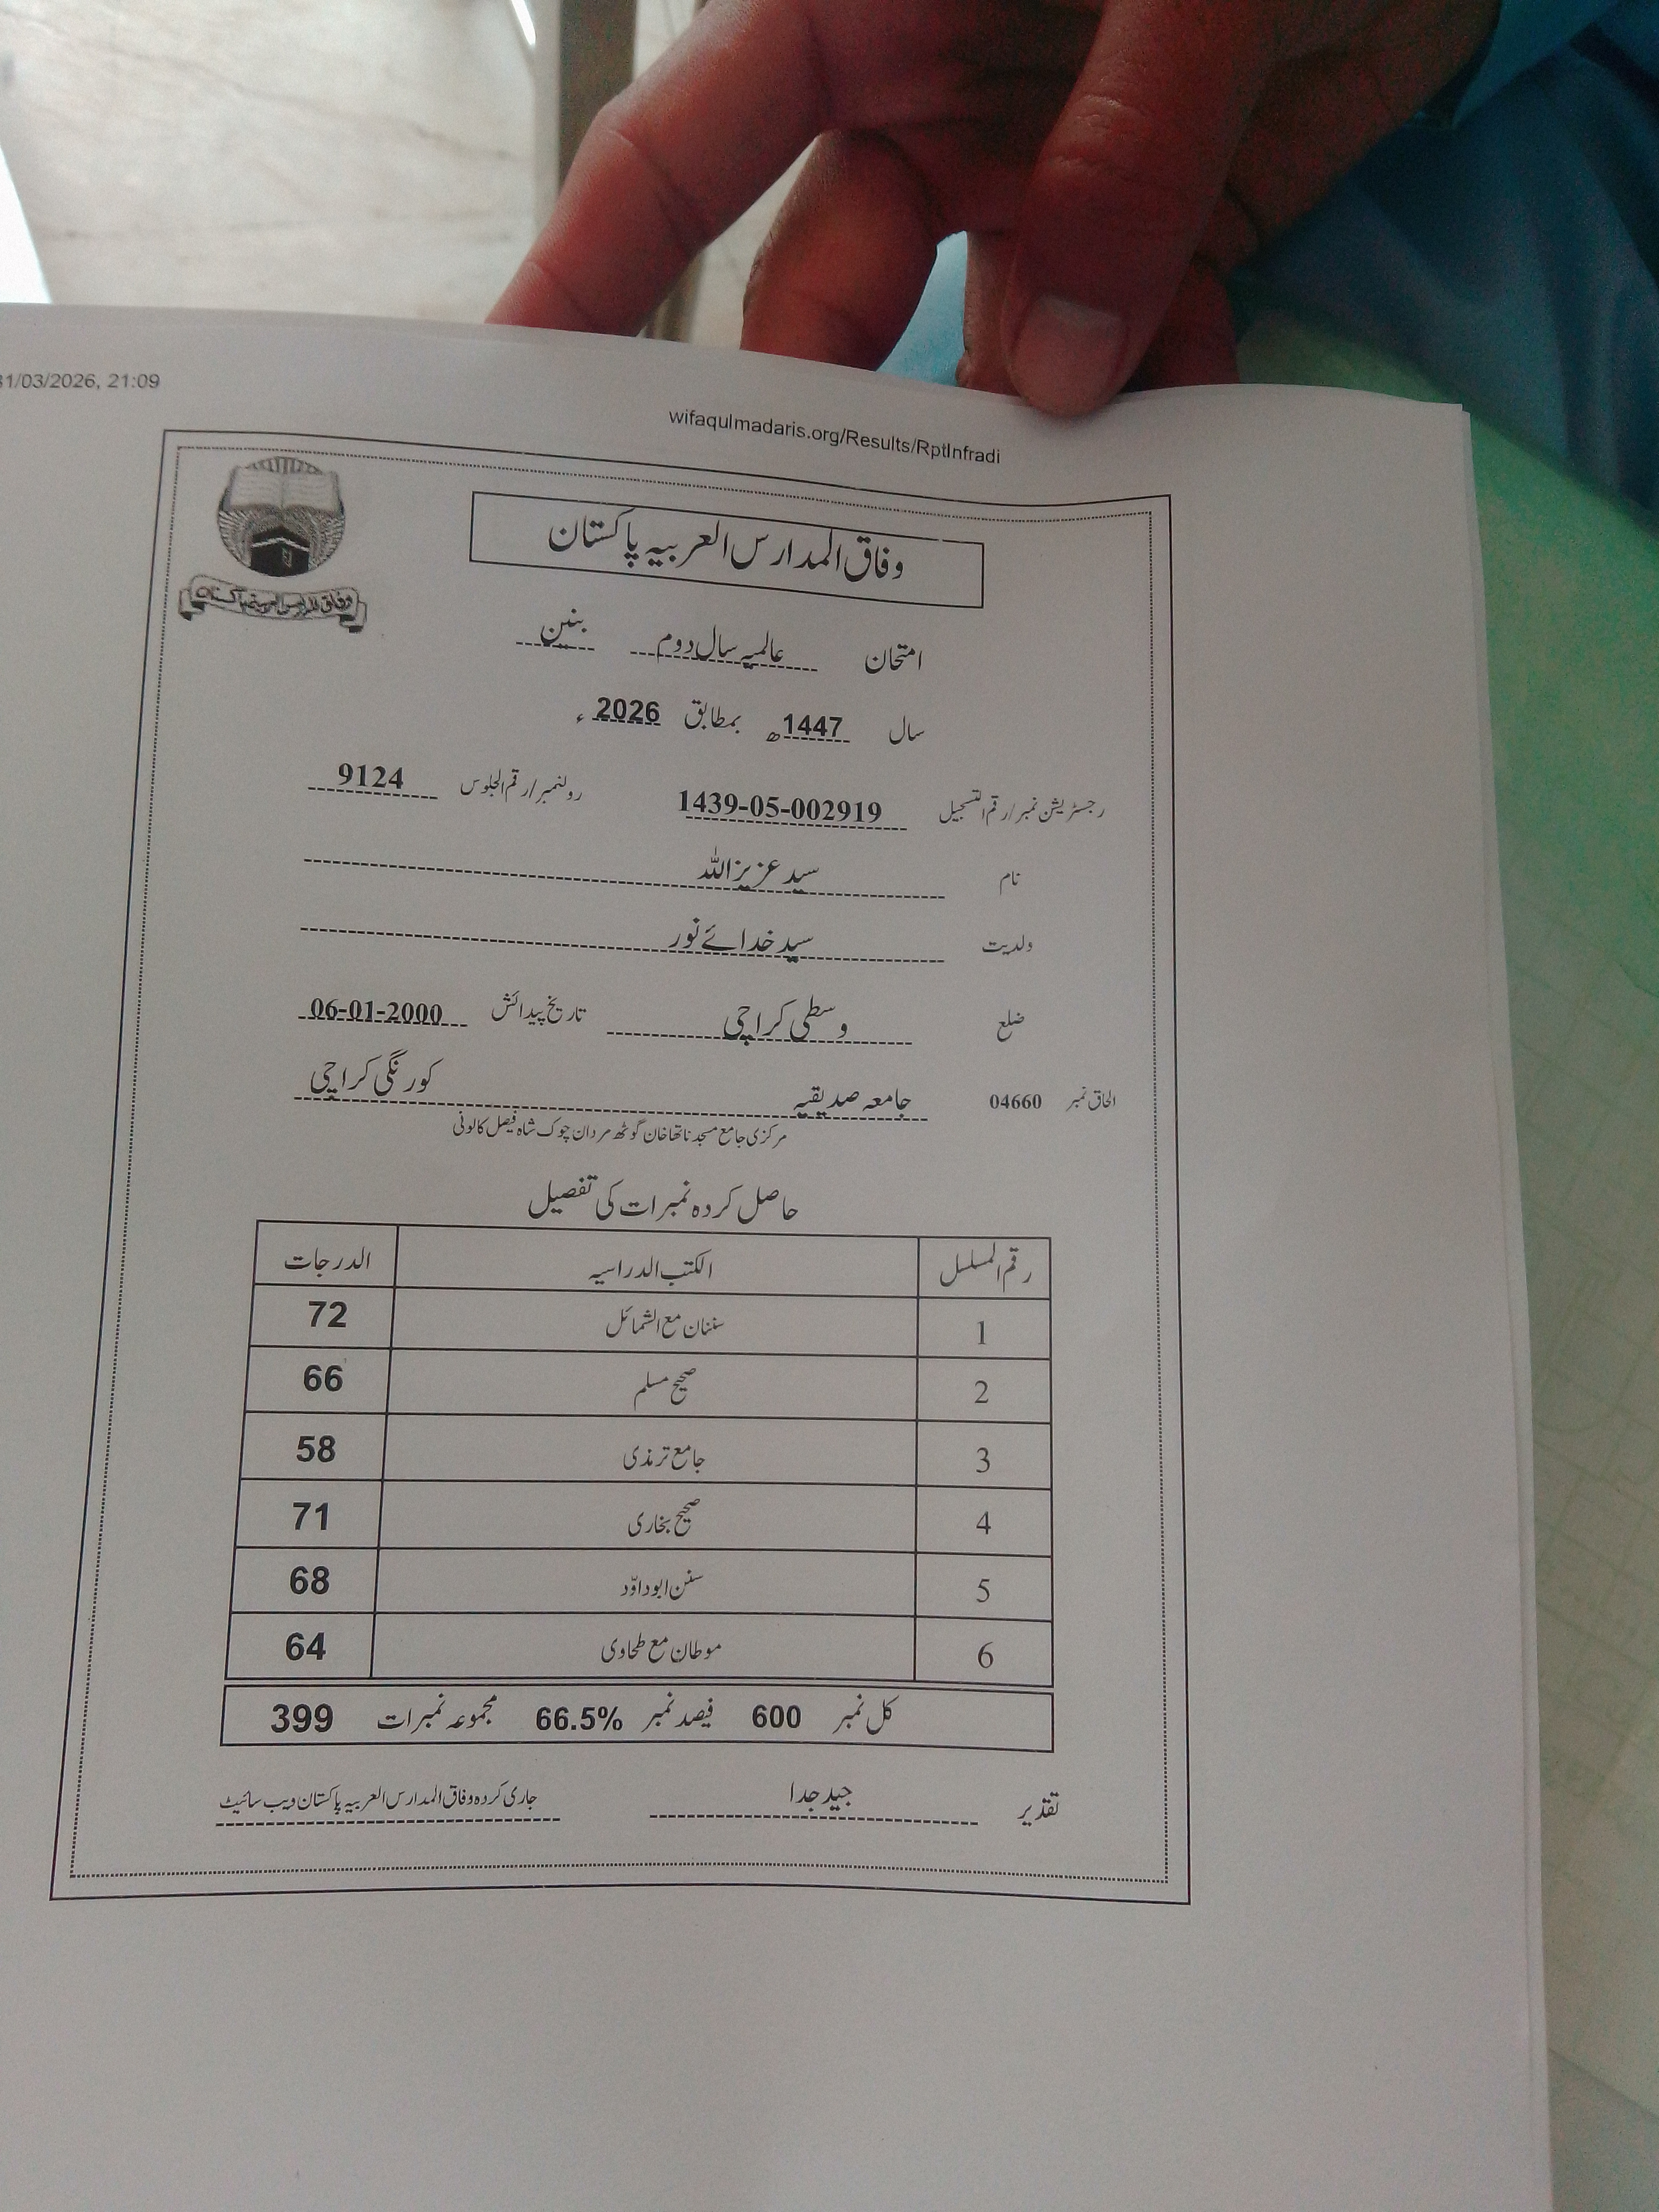 31/03/2026, 21:09
wifaqulmadaris.org/Results/RptInfradi
وفاق المدارس العربیہ پاکستان
وفاق المدارس العربیہ پاکستان
امتحان عالمیہ سال دوم بنین
سال 1447ھ بمطابق 2026ء
رجسٹریشن نمبر/رقم التسجیل 1439-05-002919 رولنمبر/رقم الجلوس 9124
نام سید عزیز اللہ
ولدیت سید خدائے نور
ضلع وسطی کراچی تاریخ پیدائش 06-01-2000
الحاق نمبر 04660 جامعہ صدیقیہ کورنگی کراچی
مرکزی جامع مسجد ناتھا خان گوٹھ مردان چوک شاہ فیصل کالونی
حاصل کردہ نمبرات کی تفصیل
رقم المسلسل الکتب الدراسیہ الدرجات
1 سننان مع الشمائل 72
2 صحیح مسلم 66
3 جامع ترمذی 58
4 صحیح بخاری 71
5 سنن ابوداؤد 68
6 موطان مع طحاوی 64
کل نمبر 600 فیصد نمبر 66.5% مجموعہ نمبرات 399
تقدیر جید جدا جاری کردہ وفاق المدارس العربیہ پاکستان ویب سائیٹ